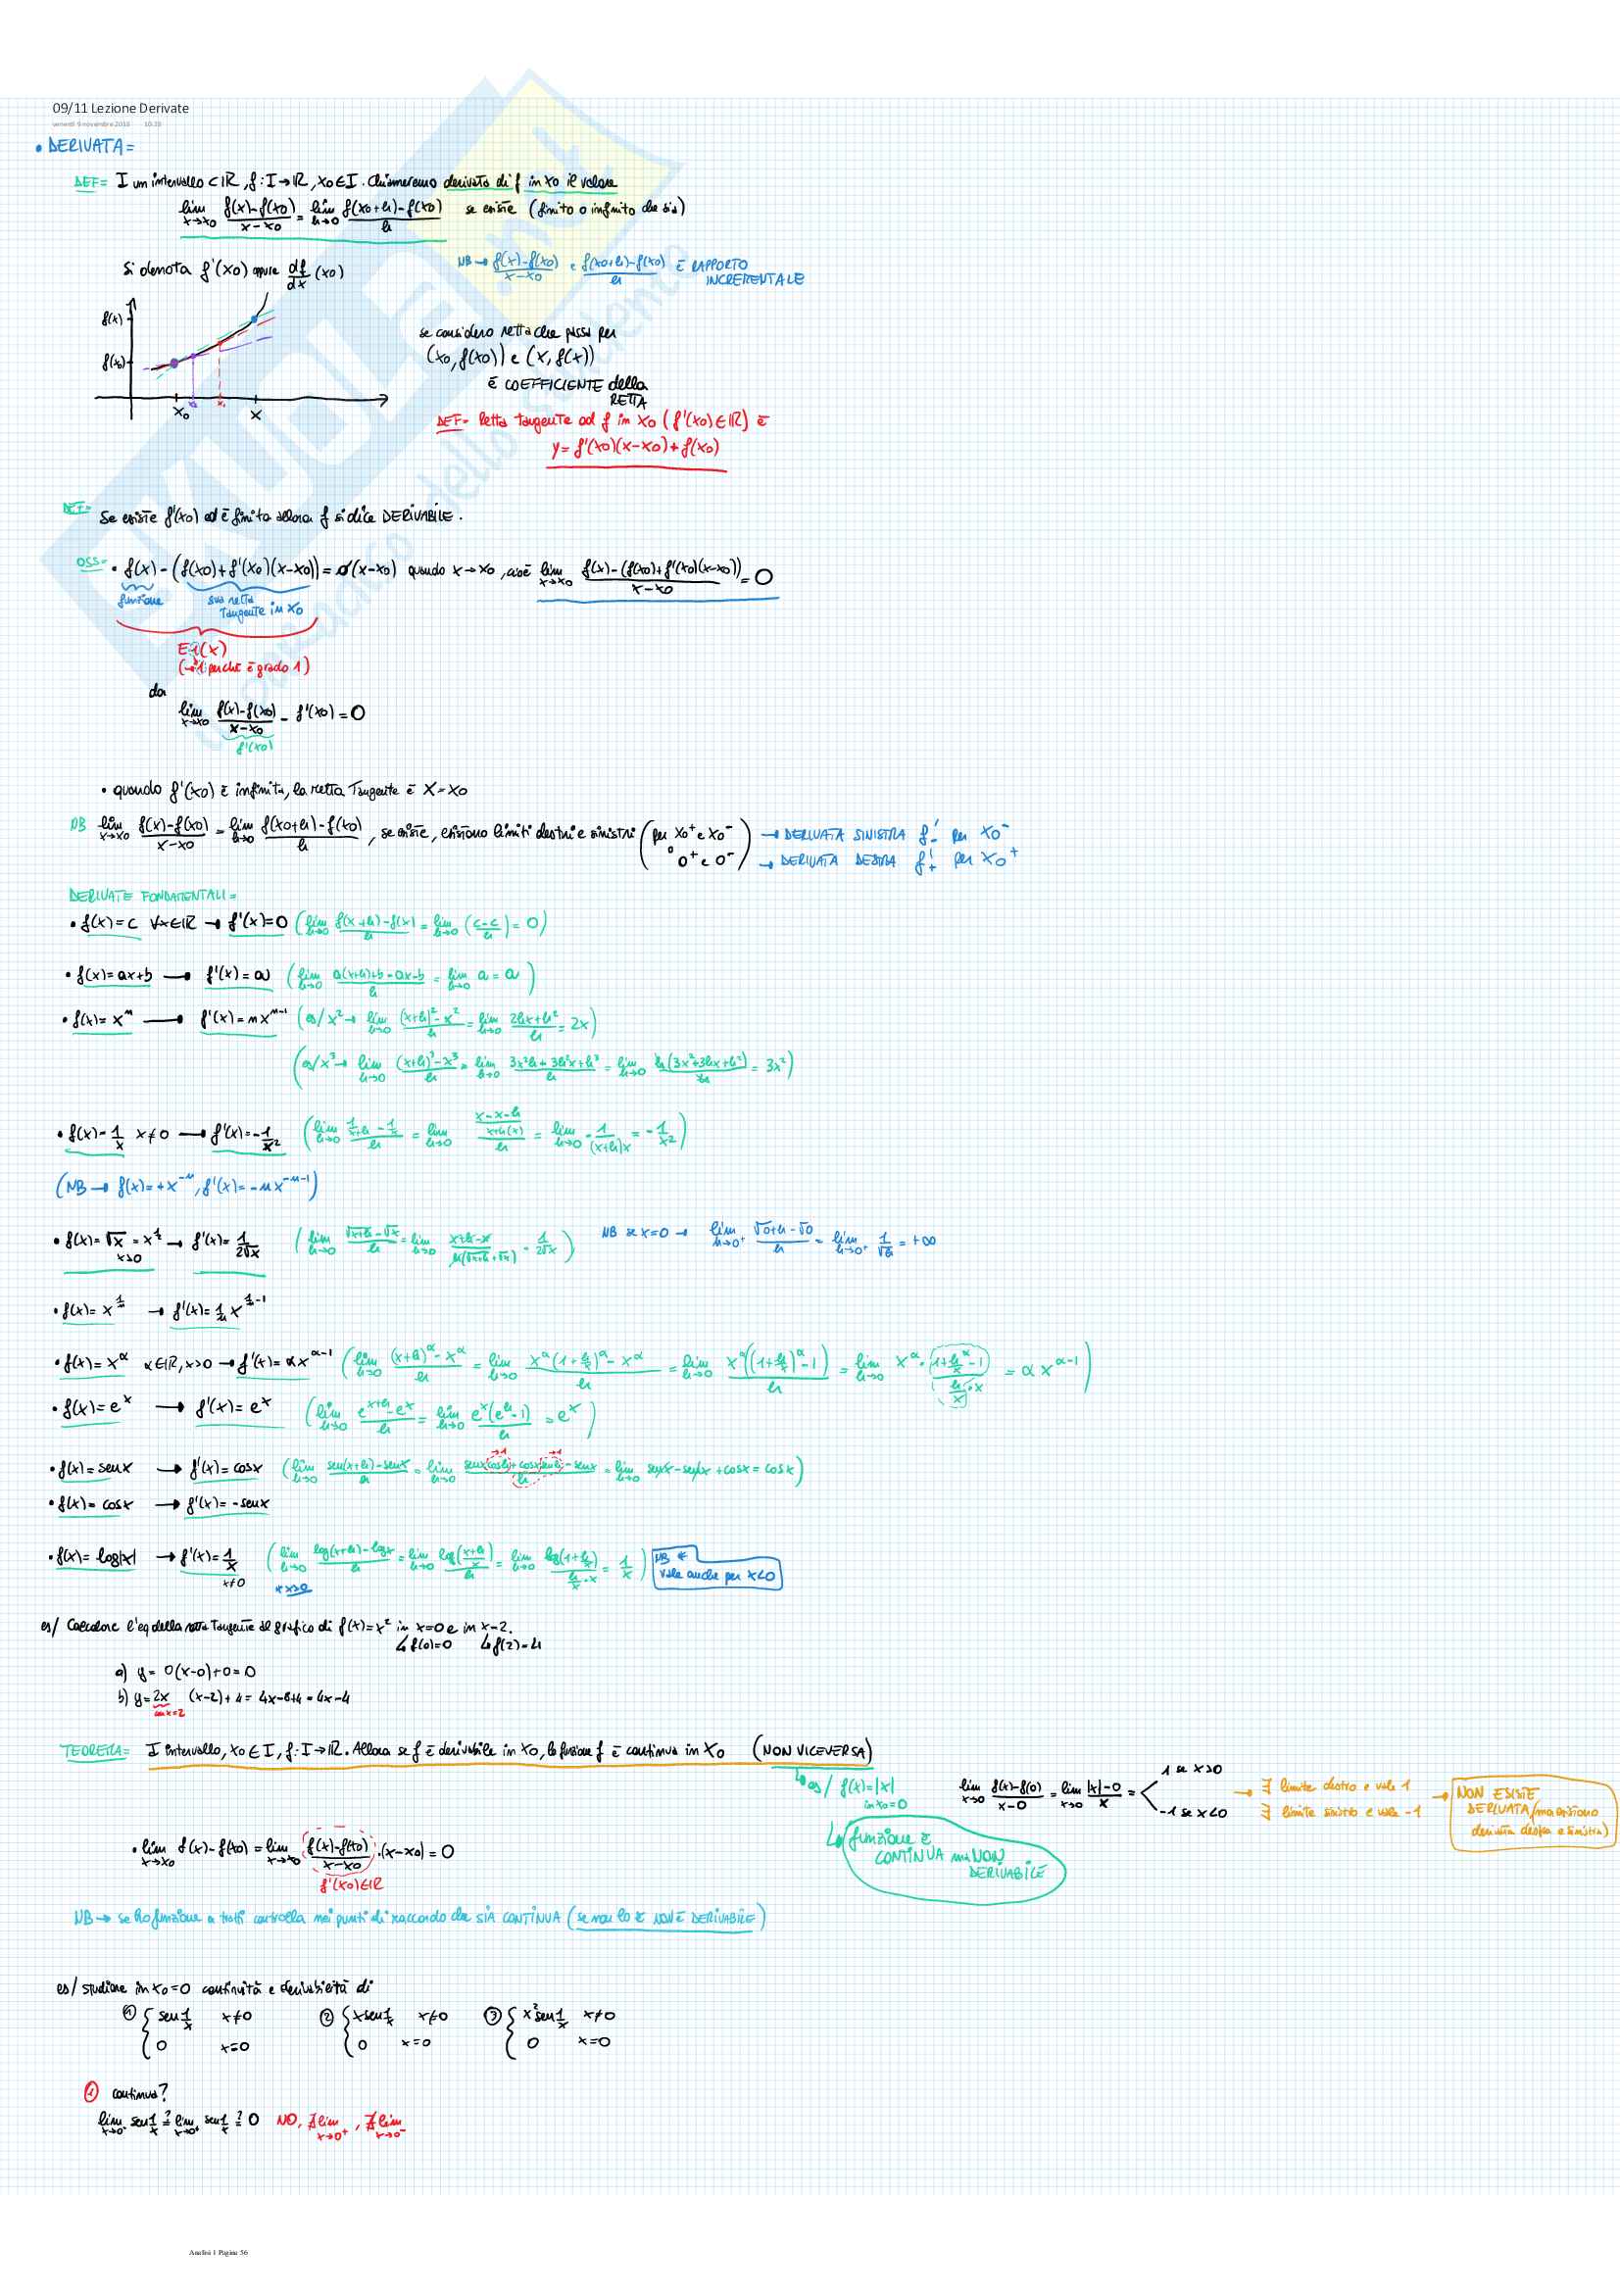 09/11 Lezione Derivate
venerdì 9 novembre 2018 10:33
• DERIVATA=
DEF= I un intervallo ⊂ ℝ, f: I→ℝ, x₀∈I. Chiameremo derivata di f in x₀ il valore
lim x→x₀ (f(x)-f(x₀))/(x-x₀) = lim h→0 (f(x₀+h)-f(x₀))/h se esiste (finito o infinito che sia)
Si denota f'(x₀) oppure df/dx (x₀)
NB→ (f(x)-f(x₀))/(x-x₀) e (f(x₀+h)-f(x₀))/h È RAPPORTO INCREMENTALE
f(x)
f(x₀)
x₀ x
se considero retta che passa per
(x₀, f(x₀)) e (x, f(x))
È COEFFICIENTE della
RETTA
DEF= Retta tangente ad f in x₀ (f'(x₀)∈ℝ) è
y = f'(x₀)(x-x₀)+f(x₀)
DEF= Se esiste f'(x₀) ed è finita allora f si dice DERIVABILE.
OSS= • f(x) - (f(x₀)+f'(x₀)(x-x₀)) = o(x-x₀) quando x→x₀, cioè lim x→x₀ (f(x)-(f(x₀)+f'(x₀)(x-x₀)))/(x-x₀) = 0
funzione sua retta
tangente in x₀
E1(x)
(→1 perché è grado 1)
da
lim x→x₀ (f(x)-f(x₀))/(x-x₀) - f'(x₀) = 0
f'(x₀)
• quando f'(x₀) è infinita, la retta Tangente è x=x₀
NB lim x→x₀ (f(x)-f(x₀))/(x-x₀) = lim h→0 (f(x₀+h)-f(x₀))/h, se esiste, esistono limiti destri e sinistri (per x₀⁺ e x₀⁻ o 0⁺ e 0⁻) → DERIVATA SINISTRA f'₋ per x₀⁻
→ DERIVATA DESTRA f'₊ per x₀⁺
DERIVATE FONDAMENTALI=
• f(x)=c ∀x∈ℝ → f'(x)=0 (lim h→0 (f(x+h)-f(x))/h = lim h→0 (c-c/h) = 0)
• f(x)=ax+b → f'(x)=a (lim h→0 (a(x+h)+b-ax-b)/h = lim h→0 a = a)
• f(x)=xⁿ → f'(x)=nxⁿ⁻¹ (es/ x²→ lim h→0 ((x+h)²-x²)/h = lim h→0 (2hx+h²)/h = 2x)
(es/ x³→ lim h→0 ((x+h)³-x³)/h = lim h→0 (3x²h+3h²x+h³)/h = lim h→0 h(3x²+3hx+h²)/h = 3x²)
• f(x)=1/x x≠0 → f'(x)=-1/x² (lim h→0 (1/(x+h) - 1/x)/h = lim h→0 ((x-x-h)/(x+h(x)))/h = lim h→0 -1/((x+h)x) = -1/x²)
(NB→ f(x)=+x⁻ⁿ, f'(x)=-nx⁻ⁿ⁻¹)
• f(x)=√x = x^½ x>0 → f'(x)=1/(2√x) (lim h→0 (√(x+h)-√x)/h = lim h→0 (x+h-x)/(h(√(x+h)+√x)) = 1/(2√x)) NB se x=0 → lim h→0⁺ (√(0+h)-√0)/h = lim h→0⁺ 1/√h = +∞
• f(x)=x^(1/n) → f'(x)=1/n x^(1/n-1)
• f(x)=x^α α∈ℝ, x>0 → f'(x)=αx^(α-1) (lim h→0 ((x+h)^α-x^α)/h = lim h→0 (x^α(1+h/x)^α-x^α)/h = lim h→0 x^α((1+h/x)^α-1)/h = lim h→0 x^α · (1+h/x^α-1)/(h/x · x) = αx^(α-1))
• f(x)=eˣ → f'(x)=eˣ (lim h→0 (e^(x+h)-eˣ)/h = lim h→0 eˣ(e^h-1)/h = eˣ)
• f(x)=senx → f'(x)=cosx (lim h→0 (sen(x+h)-senx)/h = lim h→0 (senxcosh+cosxsenh-senx)/h = lim h→0 senx-senx+cosx=cosx)
→1 →1
• f(x)=cosx → f'(x)=-senx
• f(x)=log|x| → f'(x)=1/x x≠0 (lim h→0 (log(x+h)-logx)/h = lim h→0 log((x+h)/x)/h = lim h→0 log(1+h/x)/(h/x · x) = 1/x) NB *
* x>0 vale anche per x<0
es/ Calcolare l'eq della retta tangente al grafico di f(x)=x² in x=0 e in x=2.
↳f(0)=0 ↳f(2)=4
a) y= 0(x-0)+0=0
b) y=2x (x-2)+4= 4x-8+4=4x-4
in x=2
TEOREMA= I intervallo, x₀∈I, f: I→ℝ. Allora se f è derivabile in x₀, la funzione f è continua in x₀ (NON VICEVERSA)
↳es/ f(x)=|x|
in x₀=0
lim x→0 (f(x)-f(0))/(x-0) = lim x→0 (|x|-0)/x = 1 se x>0
-1 se x<0
→ ∃ limite destro e vale 1
∃ limite sinistro e vale -1
→ NON ESISTE
DERIVATA (ma esistono
derivata destra e sinistra)
↳ funzione è
CONTINUA ma NON
DERIVABILE
• lim x→x₀ f(x)-f(x₀) = lim x→x₀ (f(x)-f(x₀))/(x-x₀) · (x-x₀) = 0
f'(x₀)∈ℝ
NB→ se ho funzione a tratti controlla nei punti di raccordo che SIA CONTINUA (se non lo È NON È DERIVABILE)
es/ studiare in x₀=0 continuità e derivabilità di
① { sen 1/x x≠0 ② { xsen 1/x x≠0 ③ { x²sen 1/x x≠0
0 x=0 0 x=0 0 x=0
① continua?
lim x→0⁻ sen 1/x ?= lim x→0⁺ sen 1/x ?= 0 NO, ∄ lim x→0⁺, ∄ lim x→0⁻
Analisi 1 Pagina 56